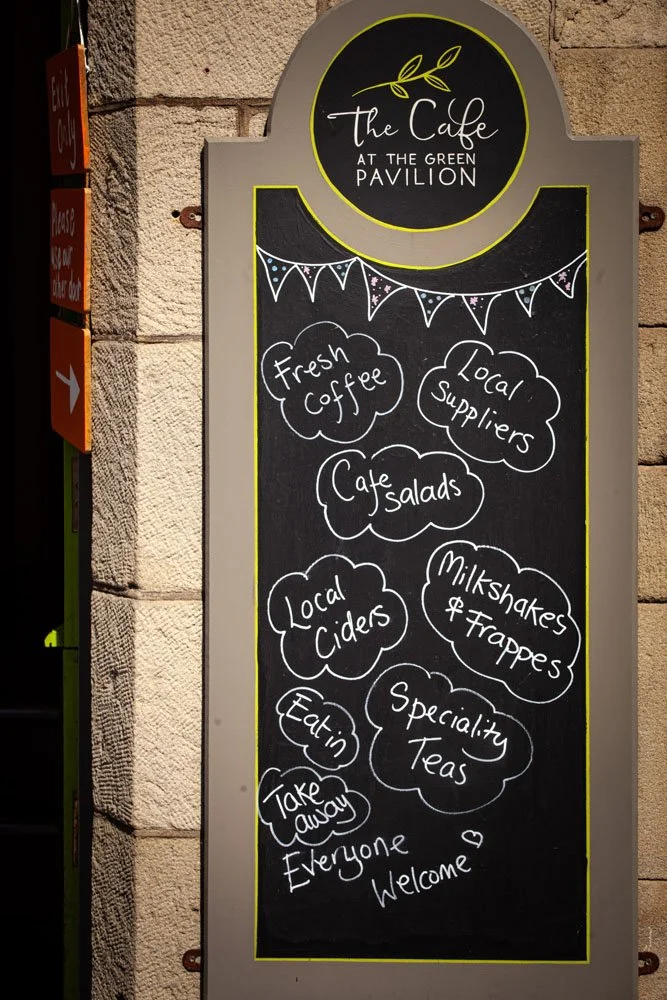 Exit
Only
Please
use our
other door
The Cafe
AT THE GREEN
PAVILION
Fresh
Coffee
Local
Suppliers
Cafe
Salads
Local
Ciders
Milkshakes
& Frappes
Eat in
Speciality
Teas
Take
away
Everyone
Welcome